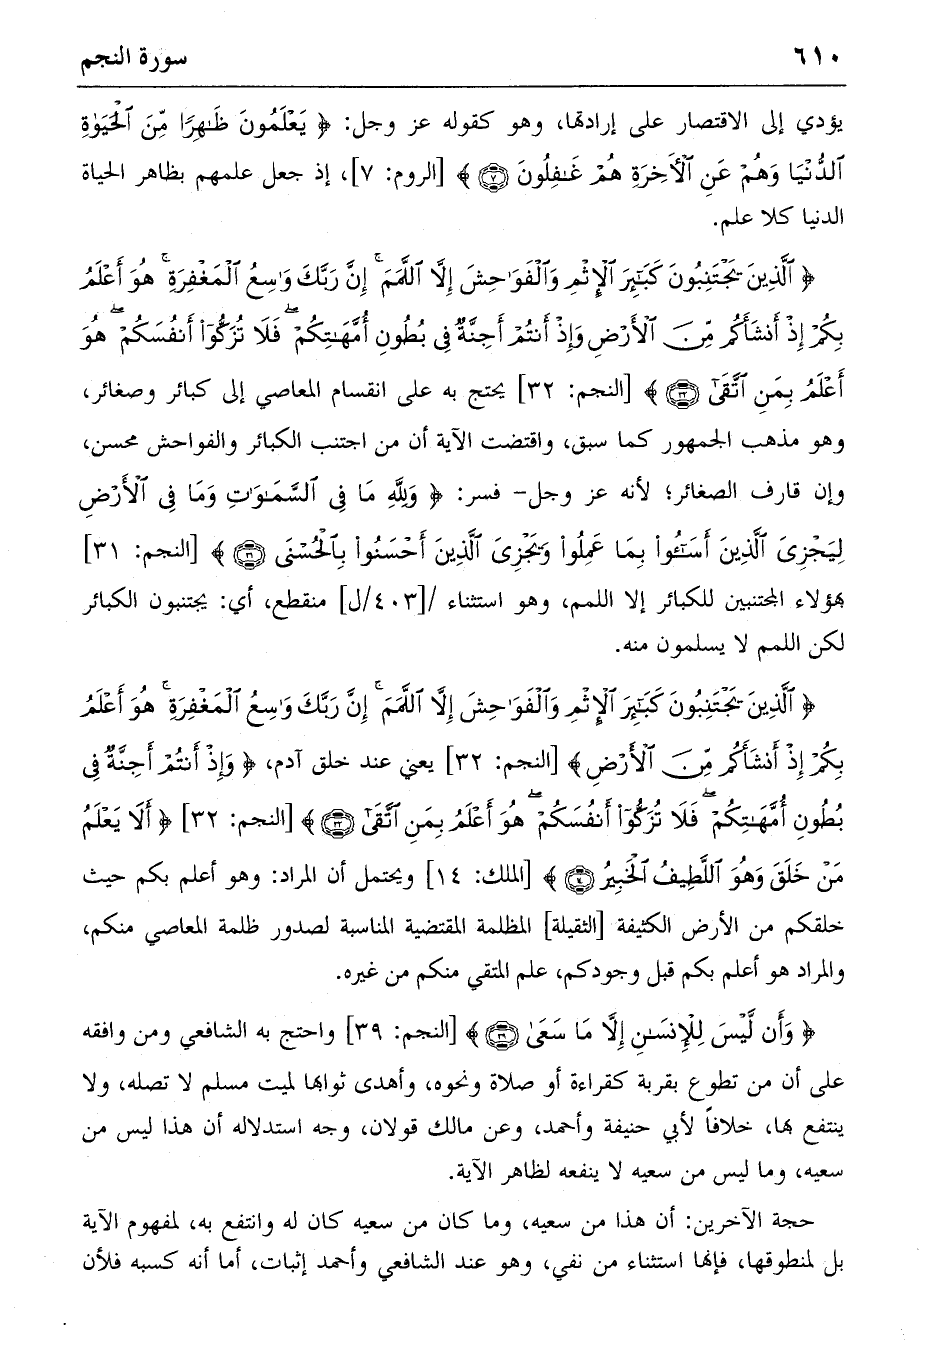 ٦١٠ سورة النجم
يؤدي إلى الاقتصار على إرادتها، وهو كقوله عز وجل: ﴿ يَعْلَمُونَ ظَٰهِرًا مِّنَ ٱلْحَيَوٰةِ
ٱلدُّنْيَا وَهُمْ عَنِ ٱلْأَخِرَةِ هُمْ غَٰفِلُونَ ۝٧ ﴾ [الروم: ٧]، إذ جعل علمهم بظاهر الحياة
الدنيا كلا علم.
﴿ ٱلَّذِينَ يَجْتَنِبُونَ كَبَٰٓئِرَ ٱلْإِثْمِ وَٱلْفَوَٰحِشَ إِلَّا ٱللَّمَمَ ۚ إِنَّ رَبَّكَ وَٰسِعُ ٱلْمَغْفِرَةِ ۚ هُوَ أَعْلَمُ
بِكُمْ إِذْ أَنشَأَكُم مِّنَ ٱلْأَرْضِ وَإِذْ أَنتُمْ أَجِنَّةٌ فِى بُطُونِ أُمَّهَٰتِكُمْ ۖ فَلَا تُزَكُّوٓا۟ أَنفُسَكُمْ ۖ هُوَ
أَعْلَمُ بِمَنِ ٱتَّقَىٰٓ ۝٣٢ ﴾ [النجم: ٣٢] يحتج به على انقسام المعاصي إلى كبائر وصغائر،
وهو مذهب الجمهور كما سبق، واقتضت الآية أن من اجتنب الكبائر والفواحش محسن،
وإن قارف الصغائر؛ لأنه عز وجل- فسر: ﴿ وَلِلَّهِ مَا فِى ٱلسَّمَٰوَٰتِ وَمَا فِى ٱلْأَرْضِ
لِيَجْزِىَ ٱلَّذِينَ أَسَٰٓـُٔوا۟ بِمَا عَمِلُوا۟ وَيَجْزِىَ ٱلَّذِينَ أَحْسَنُوا۟ بِٱلْحُسْنَى ۝٣١ ﴾ [النجم: ٣١]
بهؤلاء المجتنبين للكبائر إلا اللمم، وهو استثناء /[٤٠٣/ل] منقطع، أي: يجتنبون الكبائر
لكن اللمم لا يسلمون منه.
﴿ ٱلَّذِينَ يَجْتَنِبُونَ كَبَٰٓئِرَ ٱلْإِثْمِ وَٱلْفَوَٰحِشَ إِلَّا ٱللَّمَمَ ۚ إِنَّ رَبَّكَ وَٰسِعُ ٱلْمَغْفِرَةِ ۚ هُوَ أَعْلَمُ
بِكُمْ إِذْ أَنشَأَكُم مِّنَ ٱلْأَرْضِ﴾ [النجم: ٣٢] يعني عند خلق آدم، ﴿ وَإِذْ أَنتُمْ أَجِنَّةٌ فِى
بُطُونِ أُمَّهَٰتِكُمْ ۖ فَلَا تُزَكُّوٓا۟ أَنفُسَكُمْ ۖ هُوَ أَعْلَمُ بِمَنِ ٱتَّقَىٰٓ ۝٣٢ ﴾ [النجم: ٣٢] ﴿ أَلَا يَعْلَمُ
مَنْ خَلَقَ وَهُوَ ٱللَّطِيفُ ٱلْخَبِيرُ ۝١٤ ﴾ [الملك: ١٤] ويحتمل أن المراد: وهو أعلم بكم حيث
خلقكم من الأرض الكثيفة [الثقيلة] المظلمة المقتضية المناسبة لصدور ظلمة المعاصي منكم،
والمراد هو أعلم بكم قبل وجودكم، علم المتقي منكم من غيره.
﴿ وَأَن لَّيْسَ لِلْإِنسَٰنِ إِلَّا مَا سَعَىٰ ۝٣٩ ﴾ [النجم: ٣٩] واحتج به الشافعي ومن وافقه
على أن من تطوع بقربة كقراءة أو صلاة ونحوه، وأهدى ثوابها لميت مسلم لا تصله، ولا
ينتفع بها، خلافاً لأبي حنيفة وأحمد، وعن مالك قولان، وجه استدلاله أن هذا ليس من
سعيه، وما ليس من سعيه لا ينفعه لظاهر الآية.
حجة الآخرين: أن هذا من سعيه، وما كان من سعيه كان له وانتفع به، لمفهوم الآية
بل لمنطوقها، فإنها استثناء من نفي، وهو عند الشافعي وأحمد إثبات، أما أنه كسبه فلأن